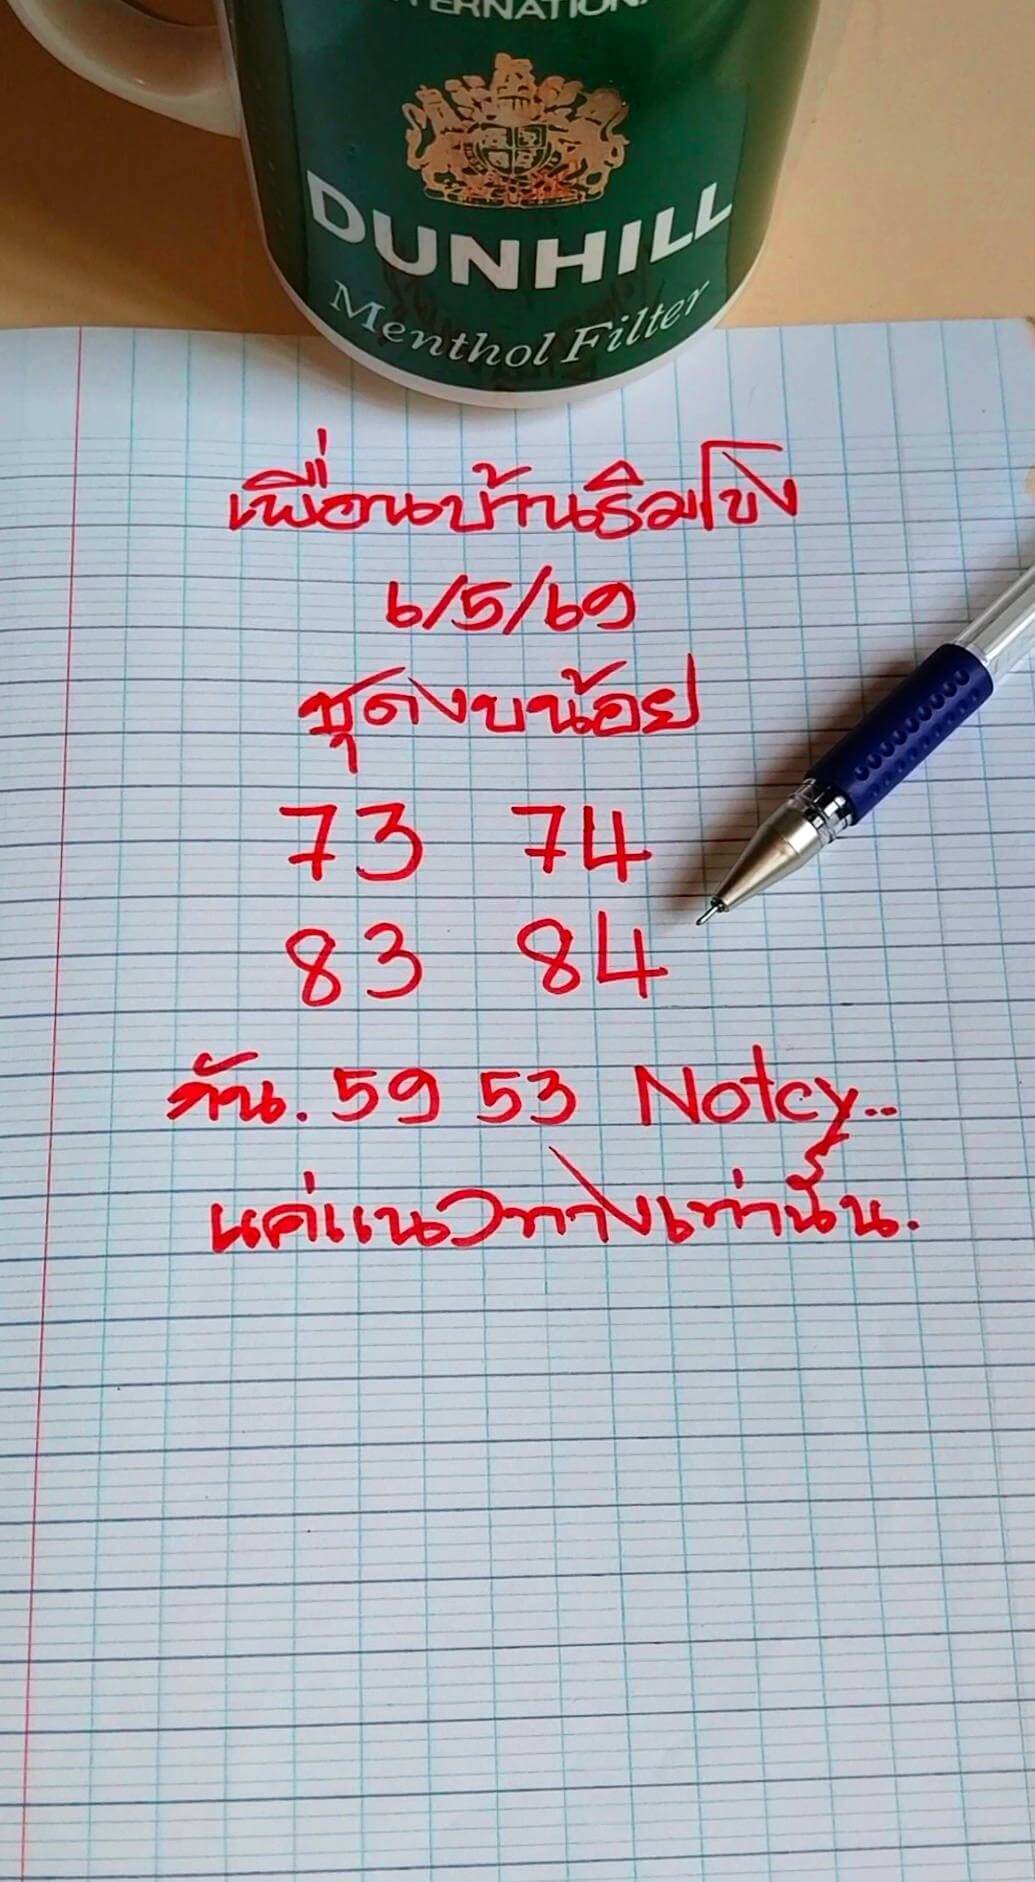 INTERNATIONAL
DUNHILL
Menthol Filter
เพื่อนบ้านริมโขง
6/5/69
ชุดงบน้อย
73 74
83 84
กัน. 59 53 Notcy..
แค่แนวทางเท่านั้น.